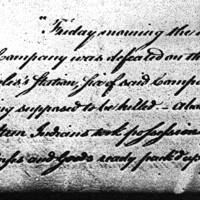 "Friday morning the
Company was defeated on th
Station, six of said Comp
supposed to be killed – abo
Indians took possession
and Goods ready pack'd up